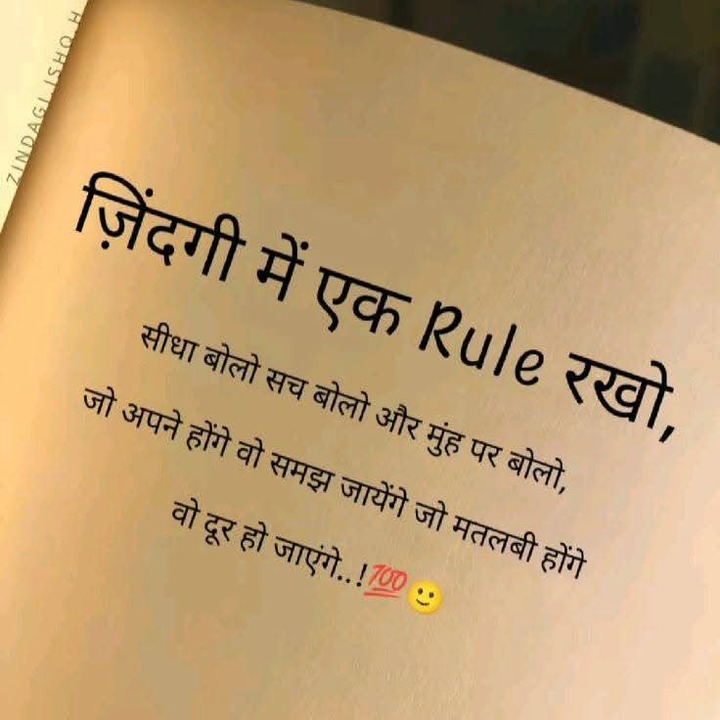 ZINDAGI_ISHQ_H
ज़िंदगी में एक Rule रखो,
सीधा बोलो सच बोलो और मुंह पर बोलो,
जो अपने होंगे वो समझ जायेंगे जो मतलबी होंगे
वो दूर हो जाएंगे..!💯🙂